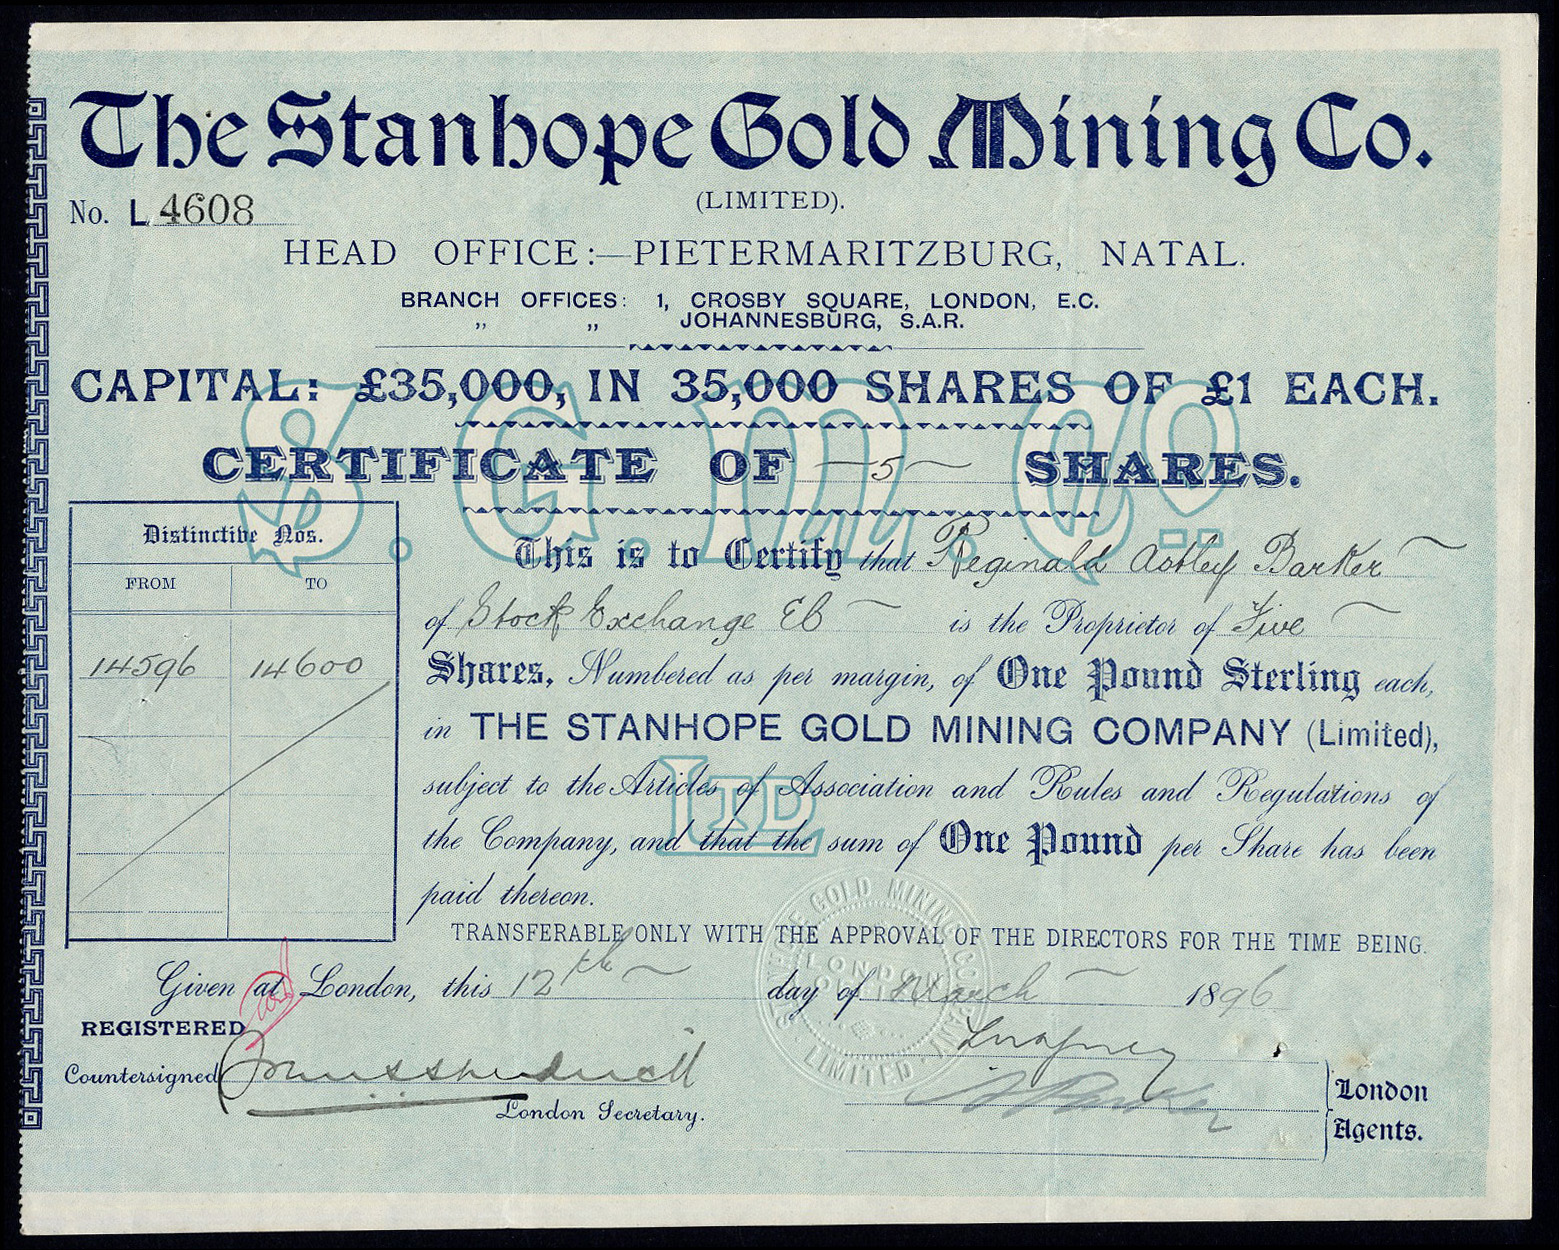 The Stanhope Gold Mining Co.
(LIMITED).
No. L 4608
HEAD OFFICE:—PIETERMARITZBURG, NATAL.
BRANCH OFFICES: 1, CROSBY SQUARE, LONDON, E.C.
„ „ JOHANNESBURG, S.A.R.
CAPITAL: £35,000, IN 35,000 SHARES OF £1 EACH.
S.G.M.Co.
CERTIFICATE OF —5— SHARES.
Distinctive Nos.
FROM TO
14596 14600
This is to Certify that Reginald Astley Barker
of Stock Exchange EC is the Proprietor of Five
Shares, Numbered as per margin, of One Pound Sterling each,
in THE STANHOPE GOLD MINING COMPANY (Limited),
LTD
subject to the Articles of Association and Rules and Regulations of
the Company, and that the sum of One Pound per Share has been
paid thereon.
TRANSFERABLE ONLY WITH THE APPROVAL OF THE DIRECTORS FOR THE TIME BEING.
Given at London, this 12th day of March 1896
STANHOPE GOLD MINING COMPANY LIMITED
LONDON
REGISTERED
Countersigned
London Secretary.
London
Agents.